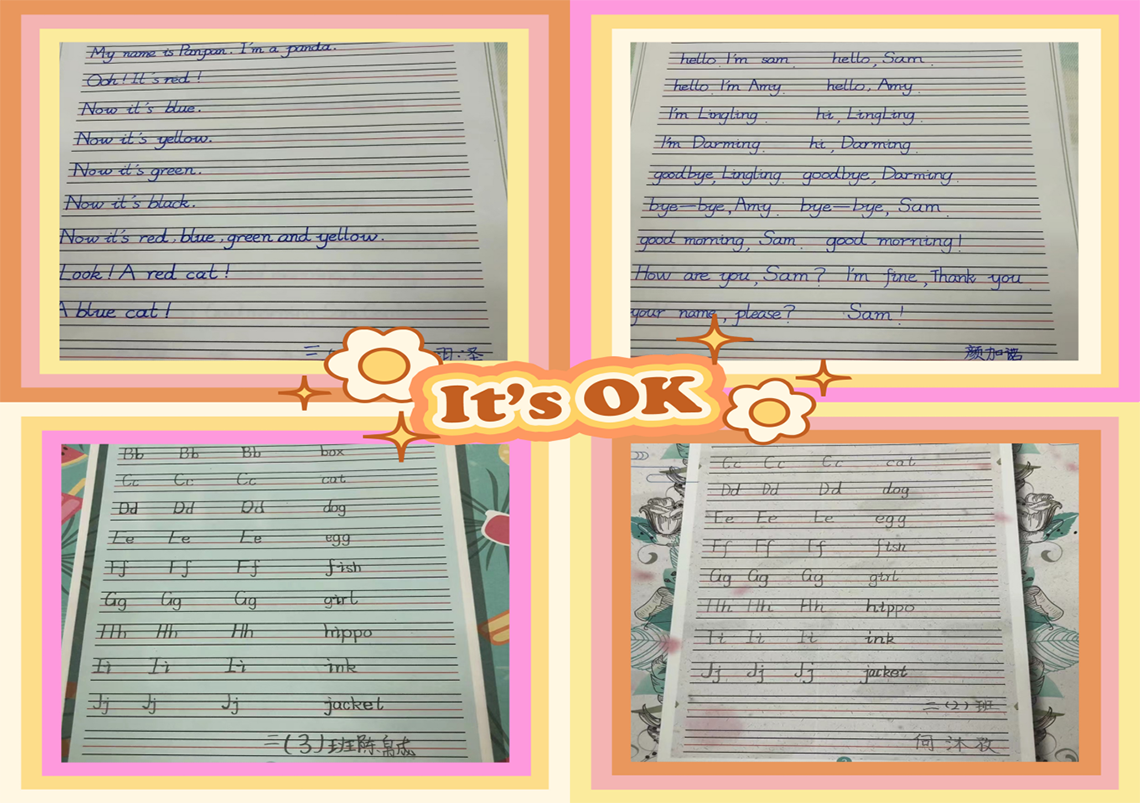 My name is Panpan. I'm a panda.
Ooh! It's red!
Now it's blue.
Now it's yellow.
Now it's green.
Now it's black.
Now it's red, blue, green and yellow.
Look! A red cat!
A blue cat!
三
hello I'm sam. hello, Sam.
hello I'm Amy. hello, Amy.
I'm Lingling. hi, LingLing.
I'm Darming. hi, Darming.
goodbye, Lingling. goodbye, Darming.
bye-bye, Amy. bye-bye, Sam.
good morning, Sam. good morning!
How are you, Sam? I'm fine, Thank you.
your name, please? Sam!
颜加诺
It's OK
Bb Bb Bb box
Cc Cc Cc cat
Dd Dd Dd dog
Ee Ee Ee egg
Ff Ff Ff fish
Gg Gg Gg girl
Hh Hh Hh hippo
Ii Ii Ii ink
Jj Jj Jj jacket
三(3)班陈
Cc Cc Cc cat
Dd Dd Dd dog
Ee Ee Ee egg
Ff Ff Ff fish
Gg Gg Gg girl
Hh Hh Hh hippo
Ii Ii Ii ink
Jj Jj Jj jacket
三(2)班
何沐